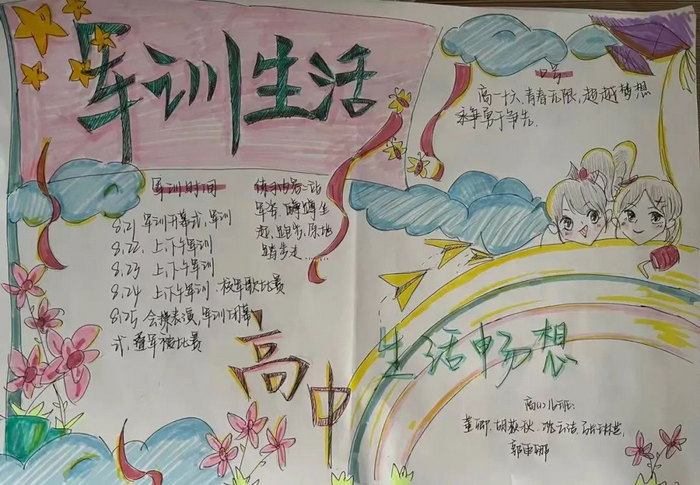 军训生活
口号
高一十六，青春无限，超越梦想
永争勇于争先.
军训时间
8.21 军训开幕式，军训
8.22. 上下午军训
8.23 上下午军训
8.24 上下午军训. 校军歌比赛
8.25 会操表演，军训闭幕
式，
比赛
训练内容：站
军姿，蹲
起，原地
踏步走……
高中
生活畅想